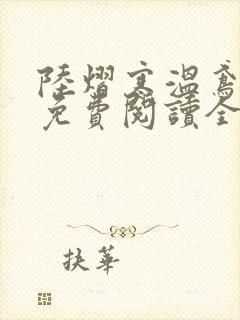 陸熠寒溫鸞
免費閱讀全
扶華